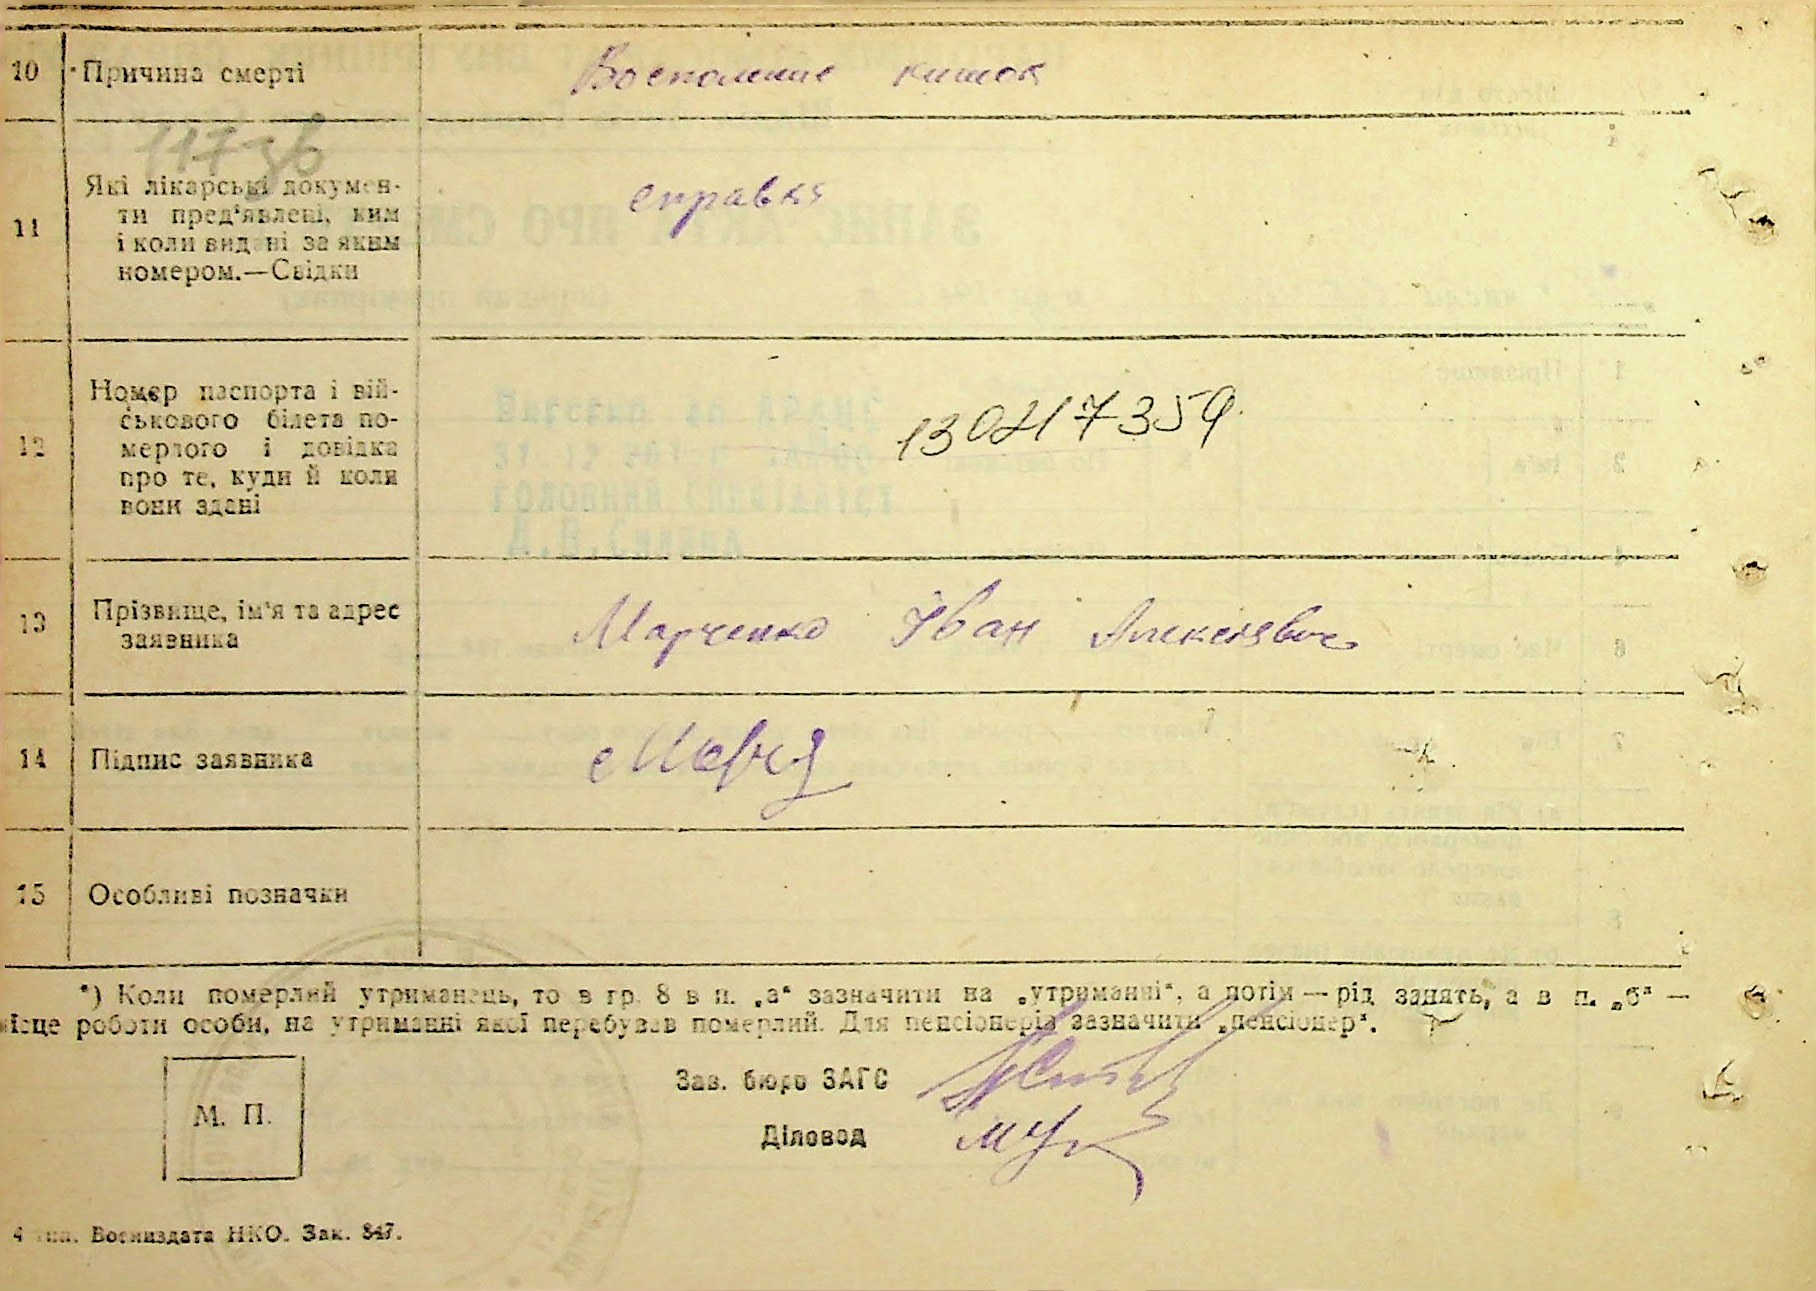 10 Причина смерті Воспаление кишок
117зв
11 Які лікарські докумен-
ти пред'явлені, ким
і коли видані за яким
номером.—Свідки
справка
12 Номер паспорта і вій-
ськового білета по-
мерлого і довідка
про те, куди й коли
вони здані
13 Прізвище, ім'я та адрес
заявника
Марченко Іван Алексеевич
14 Підпис заявника
15 Особливі позначки
*) Коли померлий утриманець, то в гр. 8 в п. „а" зазначити на „утриманні", а потім — рід занять, а в п. „б" —
місце роботи особи, на утриманні якої перебував померлий. Для пенсіонерів зазначити „пенсіонер".
Зав. бюро ЗАГС
М. П.
Діловод
4 тип. Воениздата НКО. Зак. 847.